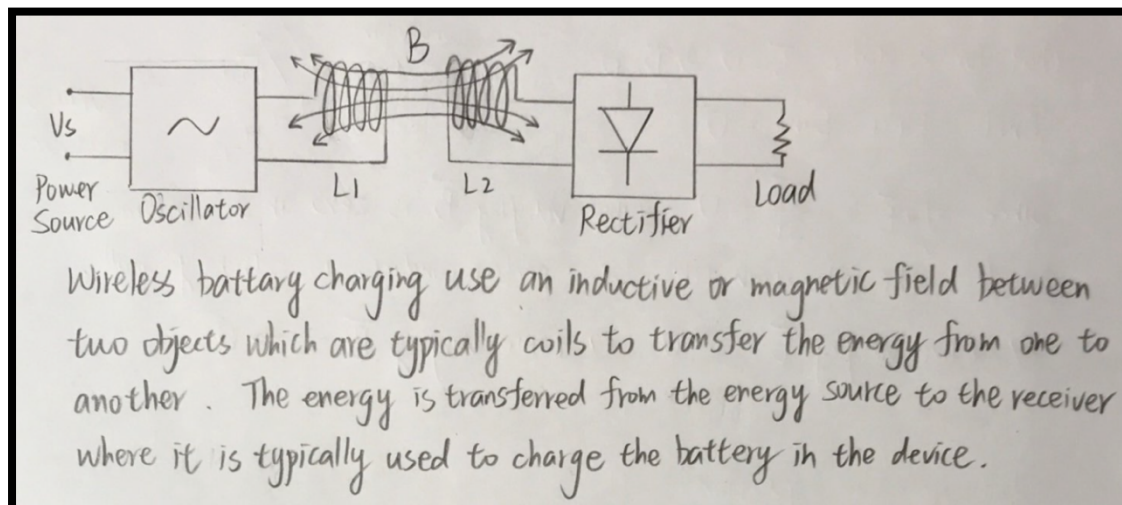 B
Vs
Power
Source
Oscillator
L1
L2
Rectifier
Load
Wireless battary charging use an inductive or magnetic field between
two objects which are typically coils to transfer the energy from one to
another. The energy is transferred from the energy source to the receiver
where it is typically used to charge the battery in the device.